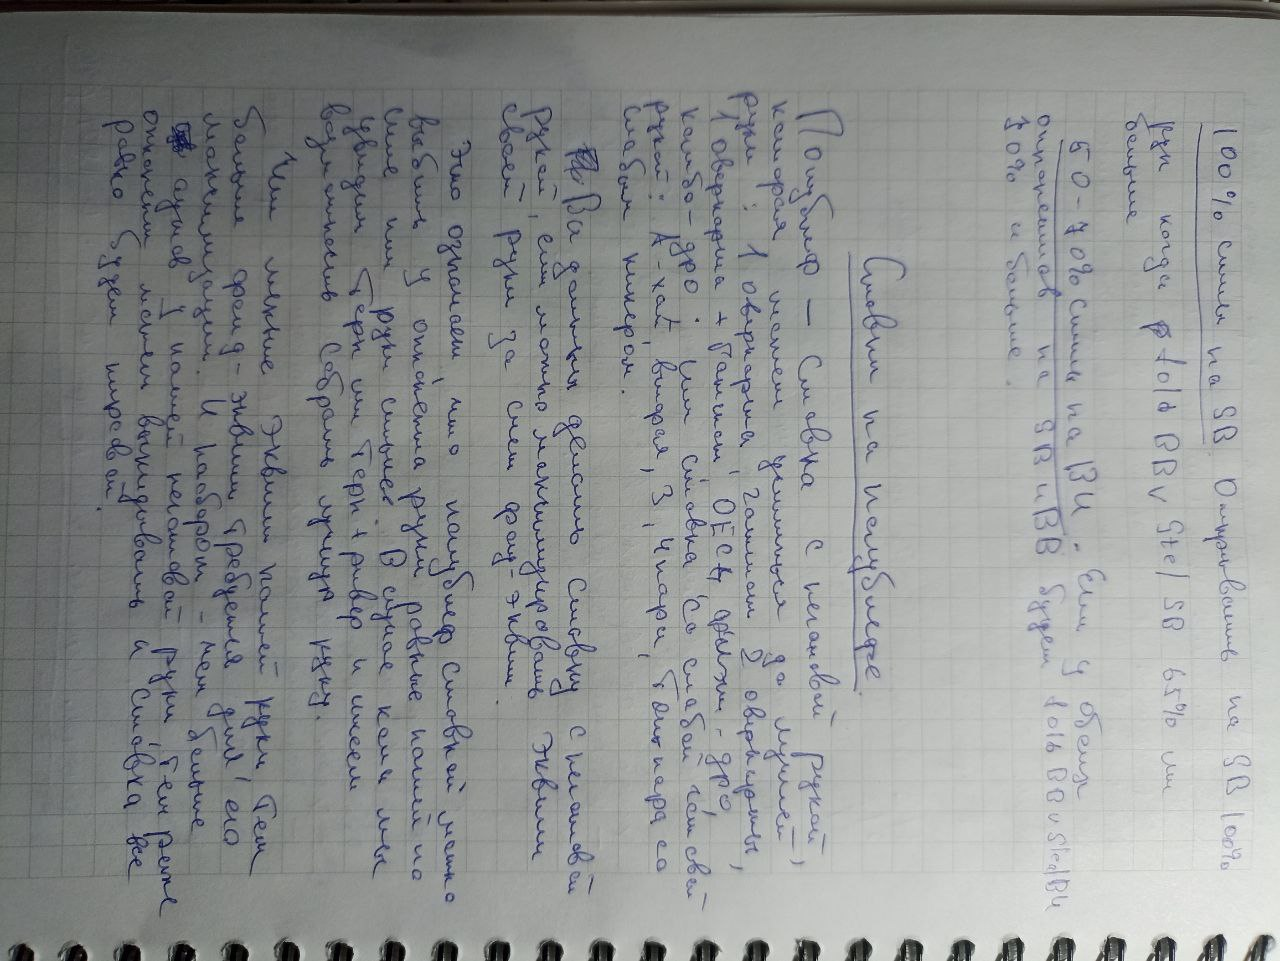 100% стил на SB. Открывать на SB 100%
рук когда fold BB v Steal SB 65% или
больше
50-70% стил на BU. Если у обеих
оппонентов на SB и BB будет fold BB v Steal BU
70% и больше.
Ставки на полублефе.
Полублеф – ставка с неготовой рукой,
которая может усилиться до лучшей
руки: 1 оверкарта, гатшот, 2 оверкарты,
1 оверкарта + гатшот, ОЕСД, флэш-дро,
комбо-дро. Или ставка со слабой готовой
рукой: А-хай, вторая, 3, 4 пары, топ пара со
слабым кикером.
Вы должны делать ставку с неготовой
рукой, если можно максимизировать эквити
своей руки за счет фолд-эквити.
Это означает, что полублеф ставкой можно
выбить у оппонента руки равные нашей по
силе или руки сильнее. В случае кола мы
увидим терн или терн + ривер и имеем
возможность собрать лучшую руку.
Чем меньше эквити нашей руки, тем
больше фолд-эквити требуется для его
максимизации. И наоборот – чем больше
аутов у нашей неготовой руки, тем реже
оппонент может выкидывать и ставка все
равно будет профитной.